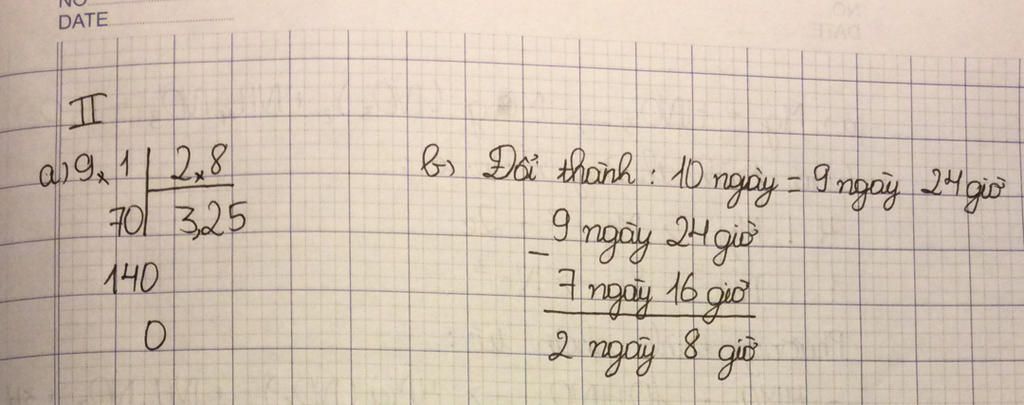 NO
DATE
II
a) 9,1 | 2,8
70 | 3,25
140
0
b) Đổi thành: 10 ngày = 9 ngày 24 giờ
- 9 ngày 24 giờ
7 ngày 16 giờ
2 ngày 8 giờ